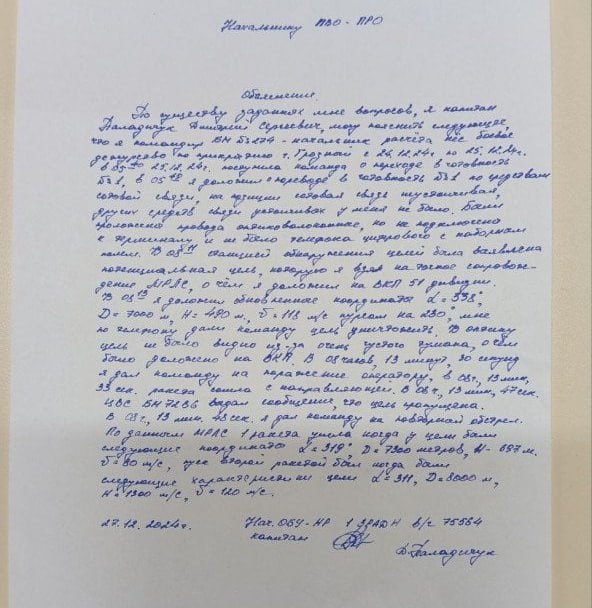 Начальнику ПВО-ПРО
Объяснение.
По существу заданных мне вопросов, я капитан
Паладичук Дмитрий Сергеевич, могу пояснить следующее,
что я командир БМ № 274 - начальник расчёта нёс боевое
дежурство по прикрытию г. Грозный с 24.12.24г. по 25.12.24г.
В 05 25.12.24г. поступила команда о переходе в готовность
№1, в 05 я доложил о переводе в готовность №1 по средствам
сотовой связи, на позиции сотовая связь неустойчивая,
других средств связи устойчивых у меня не было. Были
проложена провода оптоволоконные, но не подключена
к терминалу и не было телефона цифрового с наборным
полем. В 08 11 станцией обнаружения целей была выявлена
потенциальная цель, которую я взял на точное сопровож-
дение МРЛС, о чём я доложил на ВКП 51 дивизии.
В 08 13 я доложил обновлённые координаты α=338°,
D=7000м, H=480м, v=113 м/с курсом на 230°, мне
по телефону дали команду цель уничтожить. В оптику
цель не было видно из-за очень густого тумана, о чём
было доложено на ВКП. В 08 часов, 13 минут, 30 секунд
я дал команду на поражение оператору, в 08ч., 13 мин,
33 сек. ракета сошла с направляющей. В 08ч., 13 мин, 47 сек.
ЦВС БМ 72В6 выдал сообщение, что цель пропущена.
В 08ч., 13 мин. 48 сек. я дал команду на повторный обстрел.
По данным МРЛС 1 ракета ушла когда у цели были
следующие координаты α=319°, D=7300 метров, H-697м.
v=90 м/с, пуск второй ракетой был когда были
следующие характеристики цели α=311, D=8000 м,
H=1300 м/с, v=120 м/с.
27.12.2024г. Нач. ОБУ-НР 1 ЗРАДН в/с 75564
капитан Д. Паладичук